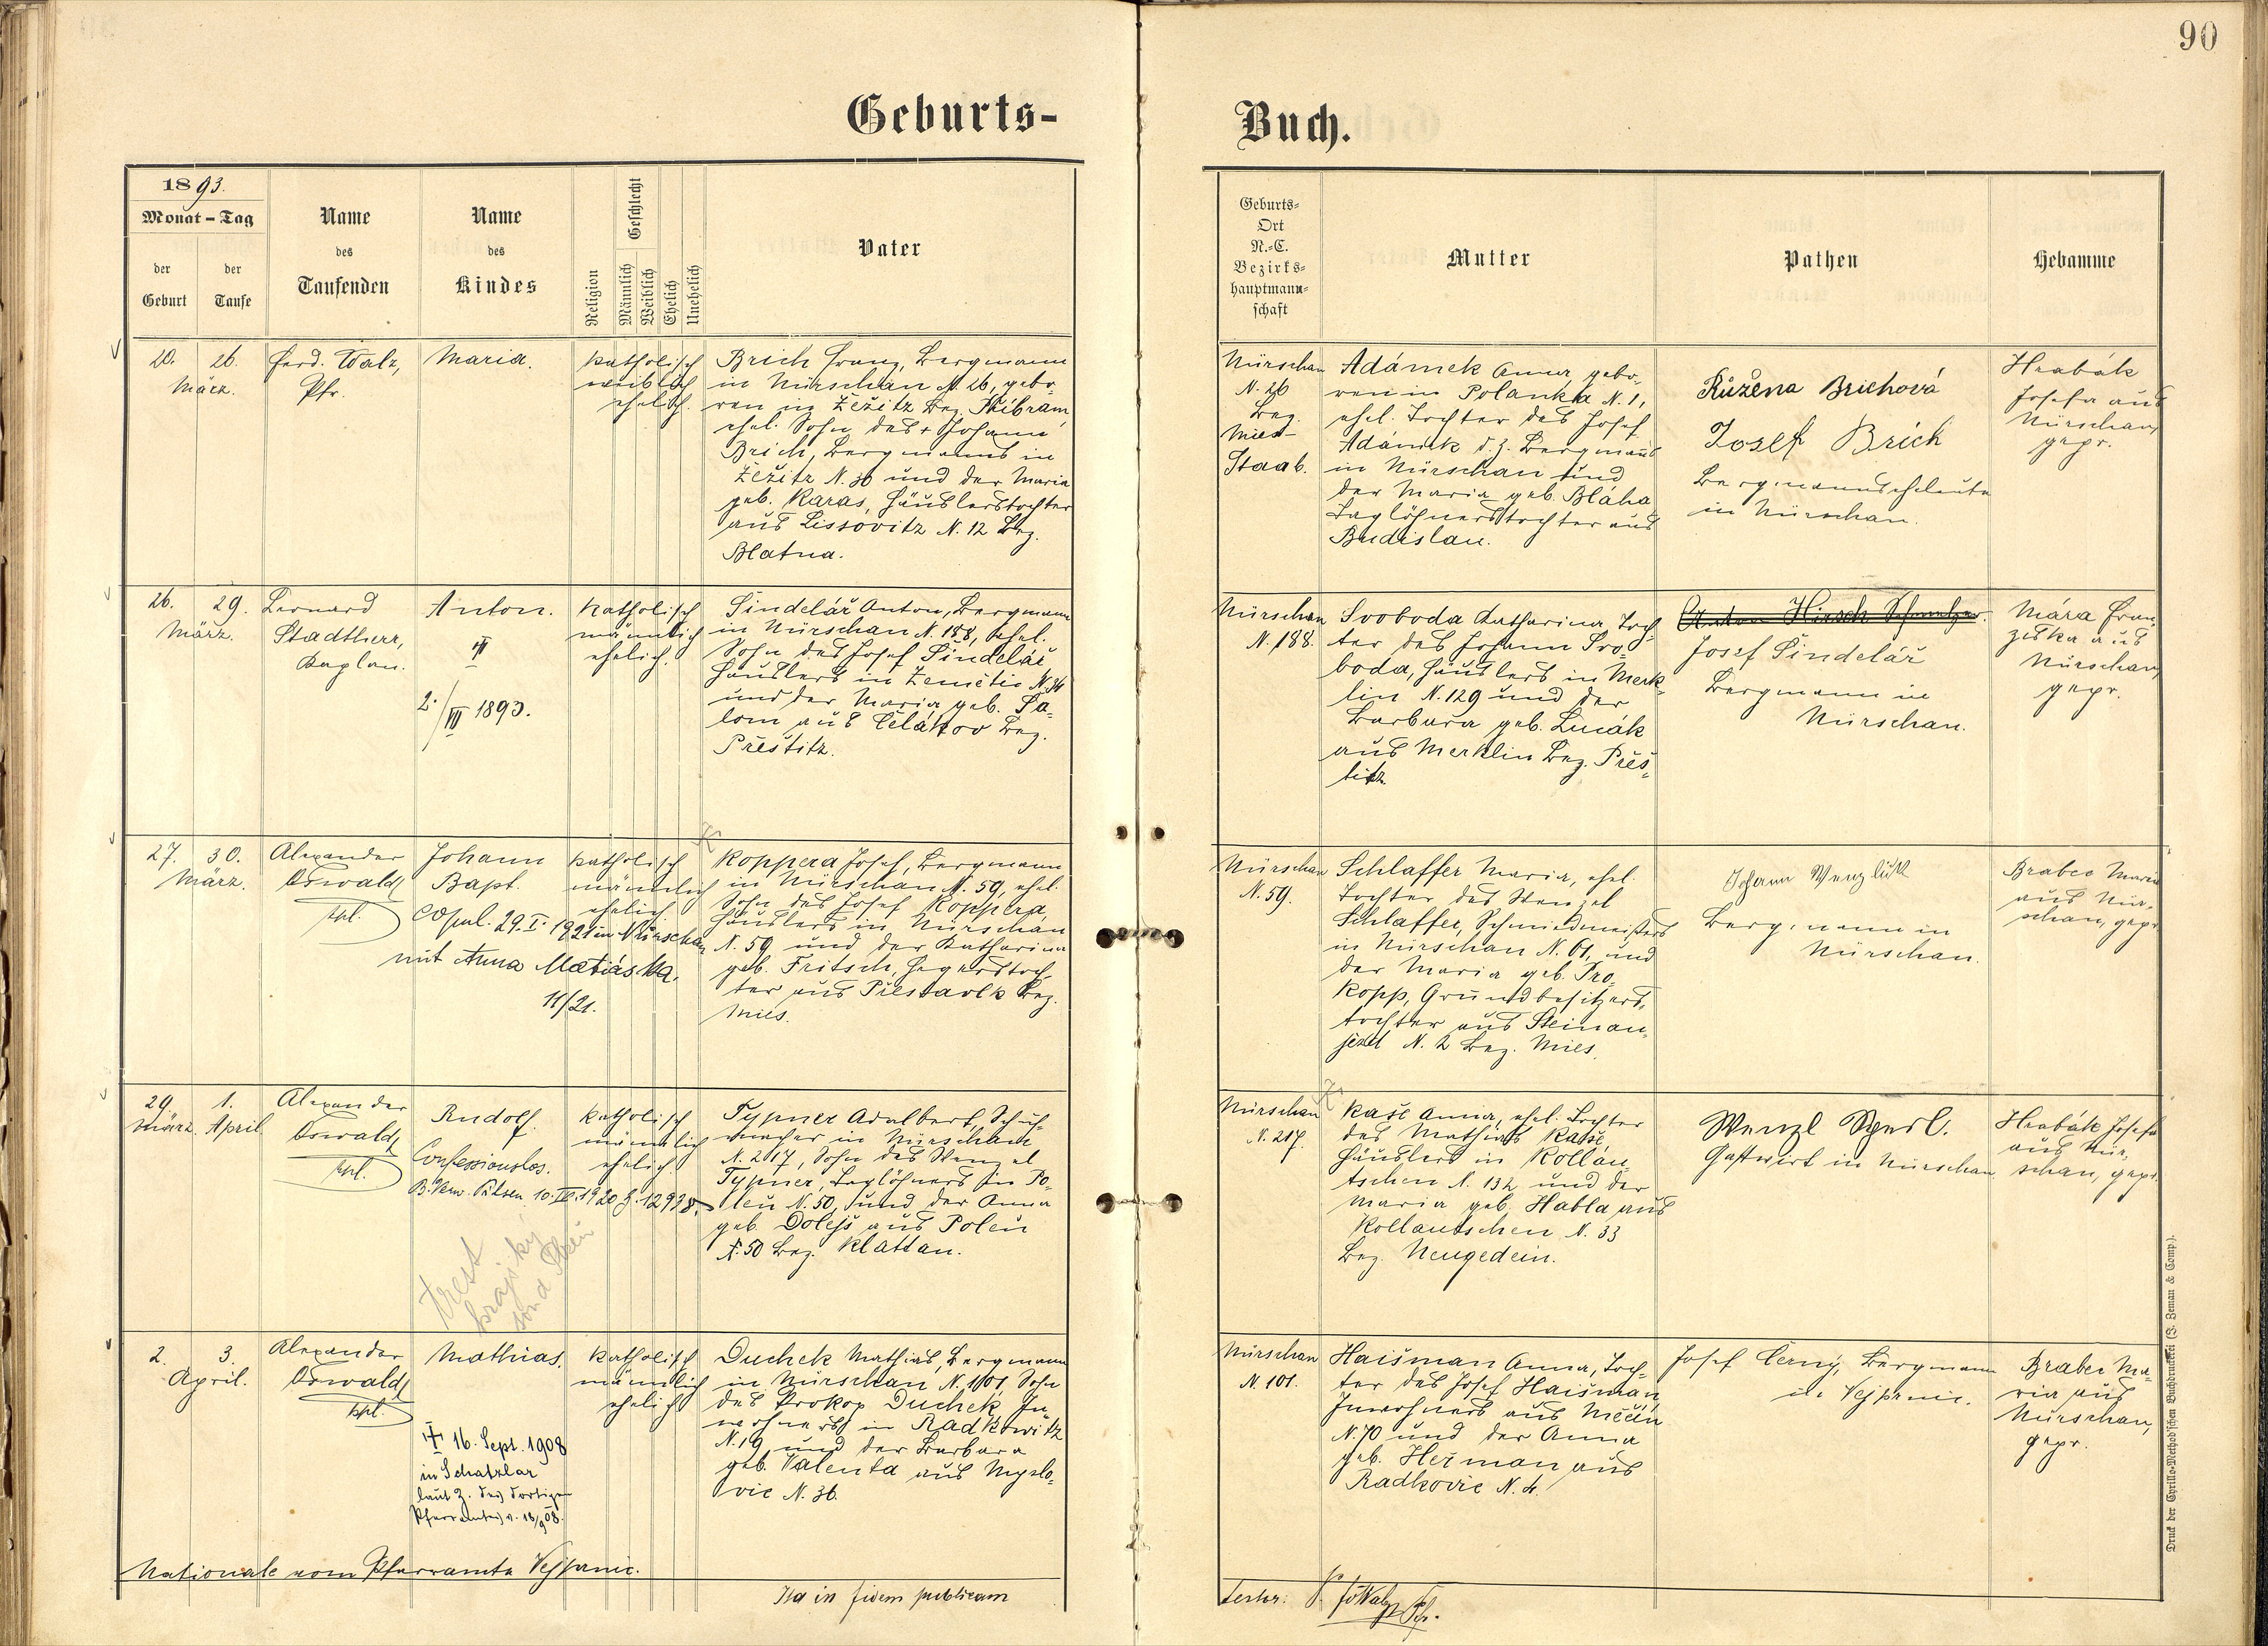 90
Geburts-
Buch.
1893.
Monat - Tag
der Geburt
der Taufe
Name des Taufenden
Name des Kindes
Religion
Geschlecht
Männlich
Weiblich
Ehelich
Unehelich
Vater
Geburts-
Ort
N.-C.
Bezirks-
hauptmann-
schaft
Mutter
Pathen
Hebamme
20. 26.
März.
Ferd. Walz,
Pfr.
Maria.
katholisch
weiblich
ehelich.
Brich Franz, Bergmann
in Nürschan N. 26, gebo-
ren in Žežitz Bez. Přibram,
ehel. Sohn des + Johann
Brich, Bergmanns in
Žežitz N. 36 und der Maria
geb. Karas, Häuslerstochter
aus Lissovitz N. 12 Bez.
Blatna.
Nürschan
N. 26
Bez.
Mies-
Staab.
Adámek Anna, gebo-
ren in Polanka N. 1,
ehel. Tochter des Josef
Adámek d.z. Bergmanns
in Nürschan und
der Maria geb. Bláha
Taglöhnerstochter aus
Budislau.
Růžena Brichová
Josef Brich
Bergmannseheleute
in Nürschan.
Hrabák
Josefa aus
Nürschan,
gepr.
26. 29.
März.
Bernard
Stadtherr,
Kaplan.
Anton.
2./III 1893.
katholisch
männlich
ehelich.
Šindelář Anton, Bergmann
in Nürschan N. 188, ehel.
Sohn des Josef Šindelář,
Häuslers in Žemětic N. 34
und der Maria geb. Ša-
lom aus Čelákov Bez.
Přeštitz.
Nürschan
N. 188.
Svoboda Katharina, Toch-
ter des Johann Svo-
boda, Häuslers in Merk-
lin N. 129 und der
Barbara geb. Lucák
aus Merklin Bez. Přeš-
titz
Josef Šindelář
Bergmann in
Nürschan.
Mára Fran-
ziska aus
Nürschan,
gepr.
27. 30.
März.
Alexander
Oswald,
kpl.
Johann
Bapt.
copul. 29. I. 1921 in Nürschan
mit Anna Matiáska.
11/21.
katholisch
männlich
ehelich
Koppera Josef, Bergmann
in Nürschan N. 59, ehel.
Sohn des Josef Koppera,
Häuslers in Nürschan
N. 59 und der Katharina
geb. Fritsch, Hegerstoch-
ter aus Přestavlk Bez.
Mies.
Nürschan
N. 59.
Schlaffer Maria, ehel.
Tochter des Wenzel
Schlaffer, Schmiedmeisters
in Nürschan N. 61, und
der Maria geb. Pro-
kopp, Grundbesitzers-
tochter aus Steinau-
jezd N. 2 Bez. Mies.
Johann Wenzlik
Bergmann in
Nürschan.
Brabec Maria
aus Nür-
schan, gepr.
29. 1.
März. April.
Alexander
Oswald,
kpl.
Rudolf.
Confessionslos.
katholisch
männlich
ehelich
Typner Adalbert, Schuh-
macher in Nürschan
N. 217, Sohn des Wenzel
Typner, Taglöhners in Po-
leň N. 50, und der Anna
geb. Dolejš aus Poleň
N. 50 Bez. Klattau.
trest
krajský
soud Plzeň
Nürschan
N. 217.
Kaše Anna, ehel. Tochter
des Mathias Kaše,
Häuslers in Kollau-
tschen N. 132 und der
Maria geb. Habla aus
Kollautschen N. 33
Bez. Neugedein.
Gastwirt in Nürschan.
Hrabák Josefa
aus Nür-
schan, gepr.
2. 3.
April.
Alexander
Oswald,
kpl.
Mathias.
+ 16. Sept. 1908
in Schatzlar
laut Z. des dortigen
Pfarramtes v. 18/9 08.
katholisch
männlich
ehelich
Duchek Mathias, Bergmann
in Nürschan N. 101, Sohn
des Prokop Duchek, In-
wohners in Radkowitz
N. 19 und der Barbara
geb. Valenta aus Myslo-
vic N. 36.
Nürschan
N. 101.
Haišman Anna, Toch-
ter des Josef Haišman,
Inwohners aus Měčín
N. 70 und der Anna
geb. Heřman aus
Radkovic N. 4.
Josef Černý, Bergmann
in Vejprnic.
Brabec Ma-
ria aus
Nürschan,
gepr.
Nationale vom Pfarramte Vejprnic.
Ita in fidem publicam
Druck der Cyrillo-Method'schen Buchdruckerei (J. Zeman & Comp.).